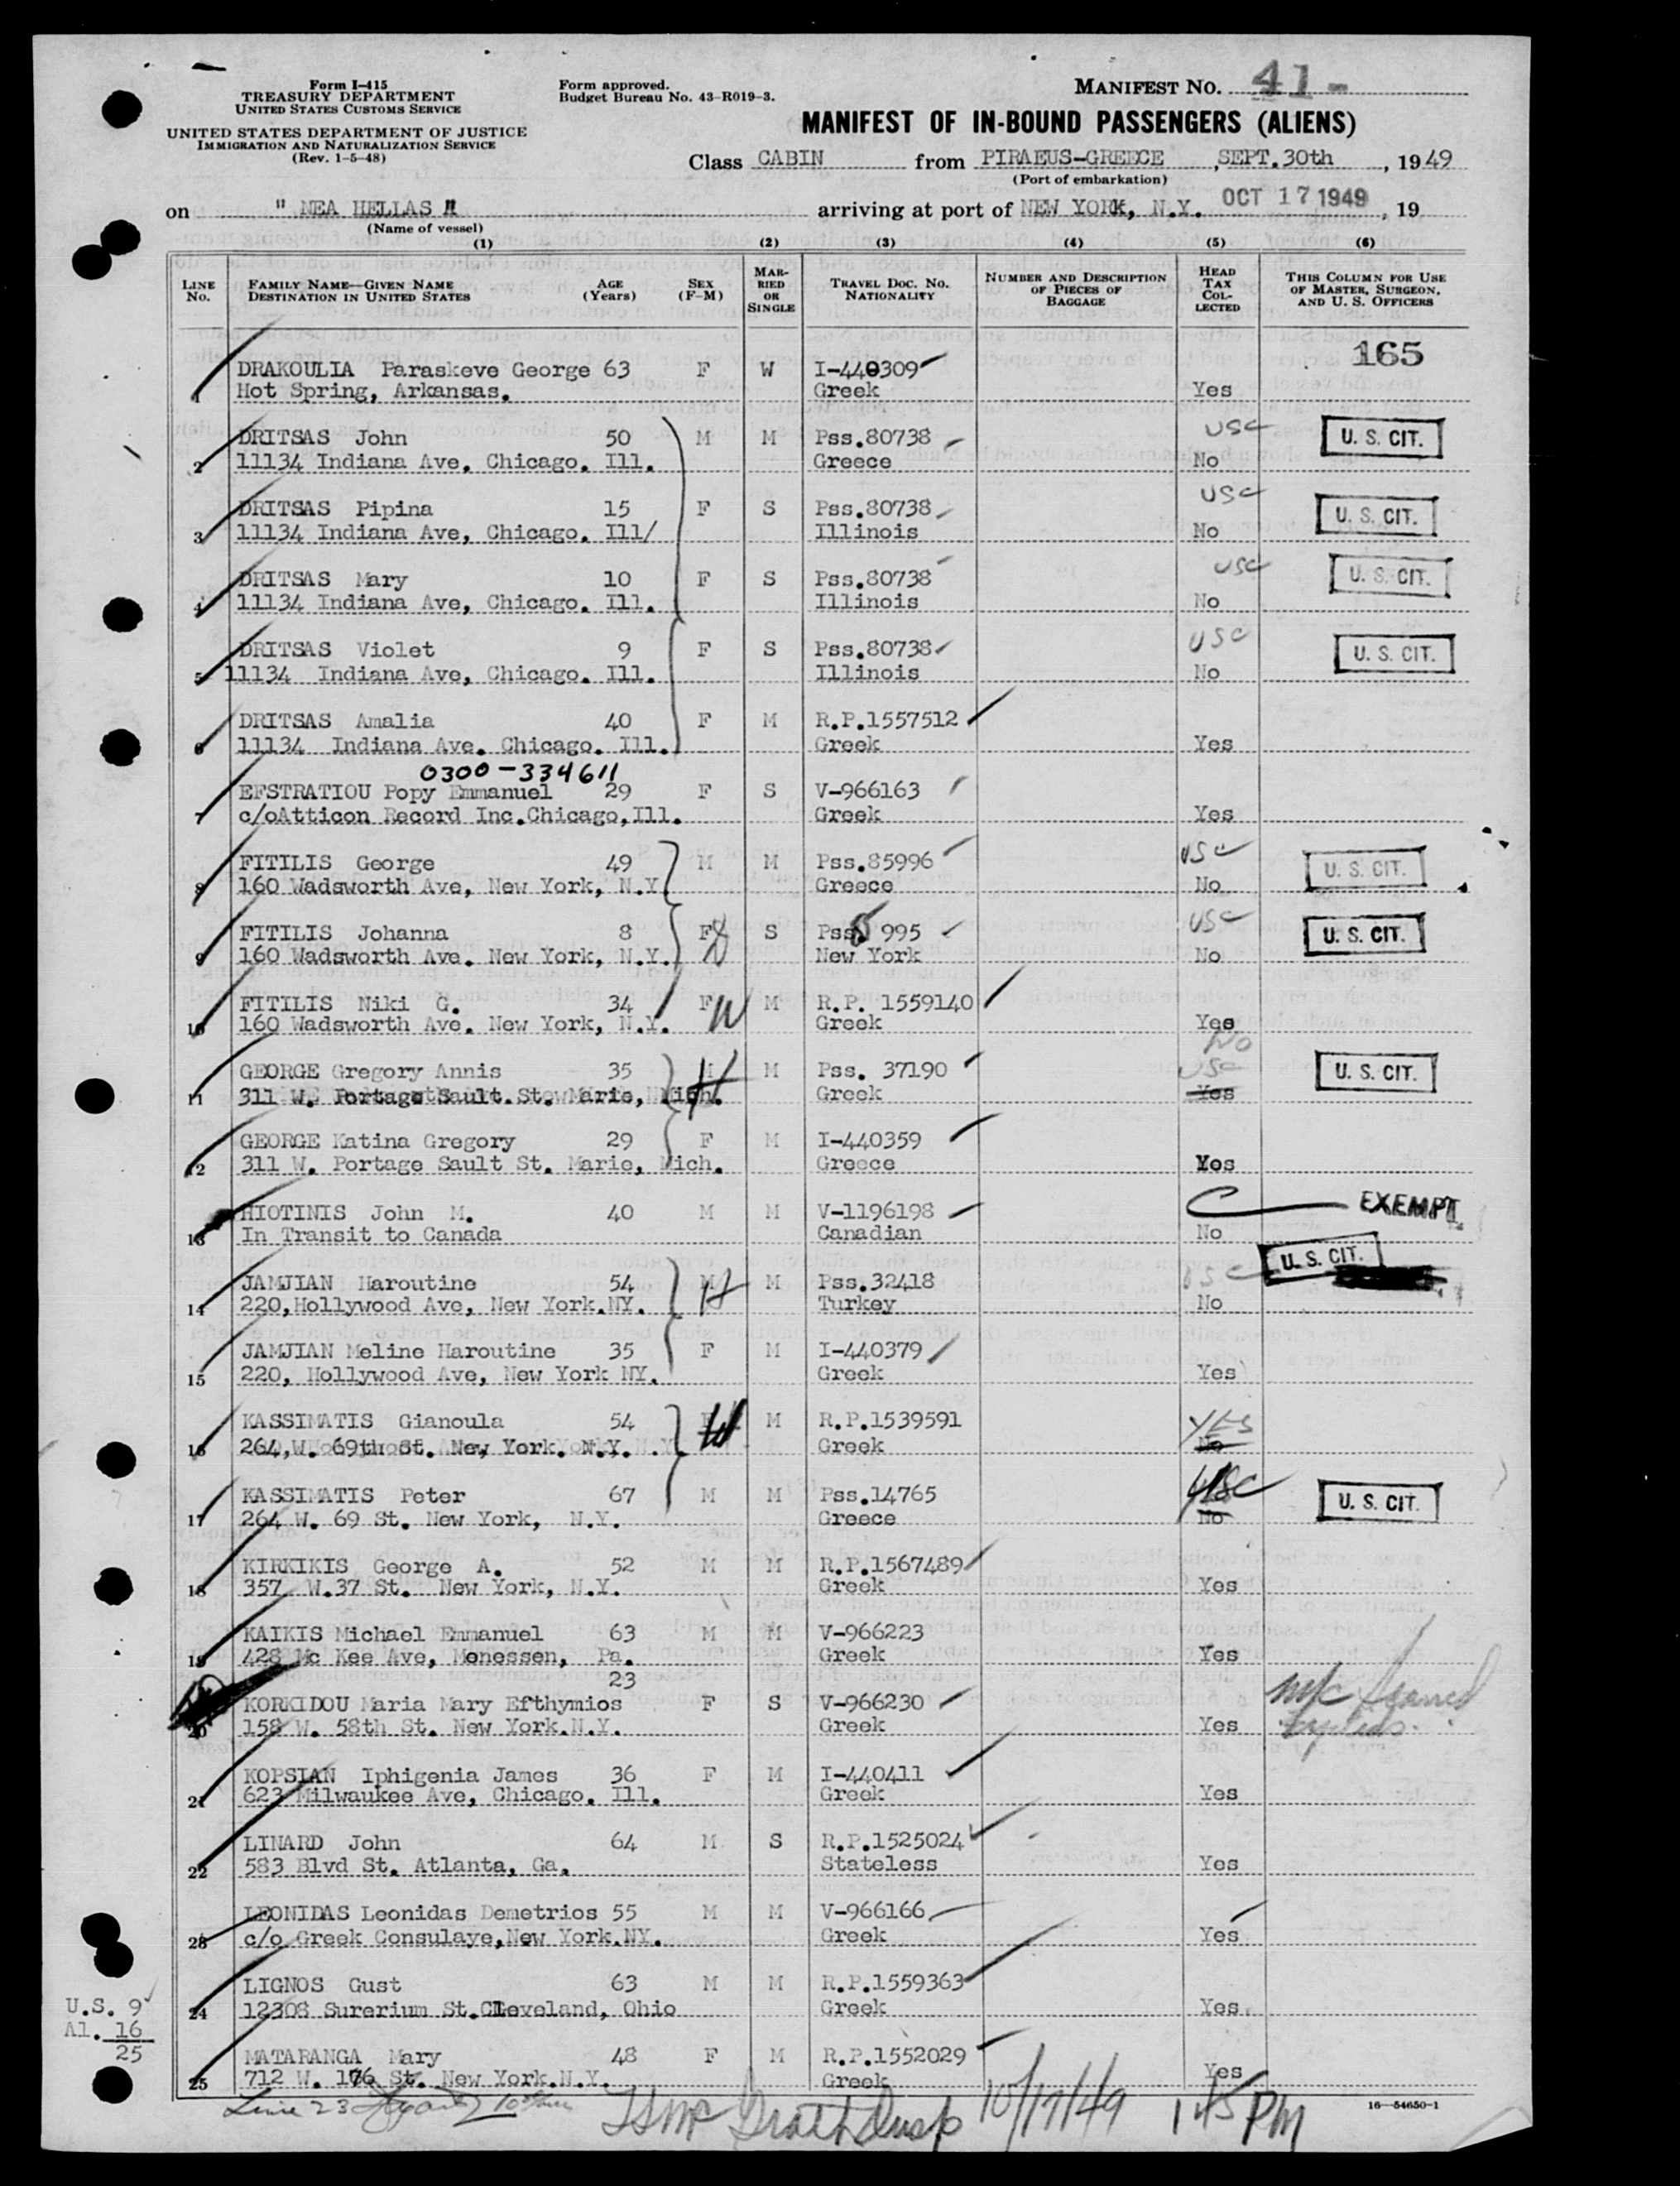 Form I-415
TREASURY DEPARTMENT
UNITED STATES CUSTOMS SERVICE
UNITED STATES DEPARTMENT OF JUSTICE
IMMIGRATION AND NATURALIZATION SERVICE
(Rev. 1-5-48)
Form approved.
Budget Bureau No. 43-R019-3.
MANIFEST NO. 41-
MANIFEST OF IN-BOUND PASSENGERS (ALIENS)
Class CABIN from PIRAEUS-GREECE, SEPT.30th, 1949
(Port of embarkation)
on " NEA HELLAS " arriving at port of NEW YORK, N.Y. OCT 17 1949, 19
(Name of vessel)
(1) (2) (3) (4) (5) (6)
LINE No. FAMILY NAME—GIVEN NAME DESTINATION IN UNITED STATES AGE (Years) SEX (F-M) MARRIED OR SINGLE TRAVEL DOC. NO. NATIONALITY NUMBER AND DESCRIPTION OF PIECES OF BAGGAGE HEAD TAX COLLECTED THIS COLUMN FOR USE OF MASTER, SURGEON, AND U. S. OFFICERS
165
DRAKOULIA Paraskeve George 63 F W I-440309
1 Hot Spring, Arkansas. Greek Yes
DRITSAS John 50 M M Pss.80738 USC U. S. CIT.
2 11134 Indiana Ave, Chicago. Ill. Greece No
DRITSAS Pipina 15 F S Pss.80738 USC U. S. CIT.
3 11134 Indiana Ave, Chicago. Ill/ Illinois No
DRITSAS Mary 10 F S Pss.80738 USC U. S. CIT.
4 11134 Indiana Ave, Chicago. Ill. Illinois No
DRITSAS Violet 9 F S Pss.80738 USC U. S. CIT.
5 11134 Indiana Ave, Chicago. Ill. Illinois No
DRITSAS Amalia 40 F M R.P.1557512
6 11134 Indiana Ave. Chicago. Ill. Greek Yes
0300-334611
EFSTRATIOU Popy Emmanuel 29 F S V-966163
7 c/oAtticon Record Inc.Chicago,Ill. Greek Yes
FITILIS George 49 M M Pss.85996 USC U. S. CIT.
8 160 Wadsworth Ave, New York, N.Y. Greece No
FITILIS Johanna 8 F S Pss. 995 USC U. S. CIT.
9 160 Wadsworth Ave. New York, N.Y. New York No
FITILIS Niki G. 34 F W M R.P. 1559140
10 160 Wadsworth Ave. New York, N.Y. Greek Yes
No
GEORGE Gregory Annis 35 H M Pss. 37190 USC U. S. CIT.
11 311 W. Portage Sault.St. Marie, Mich. Greek Yes
GEORGE Katina Gregory 29 F M I-440359
12 311 W. Portage Sault St. Marie, Mich. Greece Yes
HIOTINIS John M. 40 M M V-1196198 EXEMPT
13 In Transit to Canada Canadian No
JAMJIAN Haroutine 54 M H M Pss.32418 USC U. S. CIT.
14 220,Hollywood Ave, New York.NY. Turkey No
JAMJIAN Meline Haroutine 35 F M I-440379
15 220, Hollywood Ave, New York NY. Greek Yes
KASSIMATIS Gianoula 54 W M R.P.1539591 YES
16 264,W. 69th St. New York. N.Y. Greek No
KASSIMATIS Peter 67 M M Pss.14765 USC U. S. CIT.
17 264 W. 69 St. New York, N.Y. Greece No
KIRKIKIS George A. 52 M M R.P.1567489
18 357 W.37 St. New York, N.Y. Greek Yes
KAIKIS Michael Emmanuel 63 M M V-966223
19 428 Mc Kee Ave, Monessen, Pa. Greek Yes
23
KORKIDOU Maria Mary Efthymios F S V-966230
20 158 W. 58th St. New York.N.Y. Greek Yes
KOPSIAN Iphigenia James 36 F M I-440411
21 623 Milwaukee Ave, Chicago. Ill. Greek Yes
LINARD John 64 M S R.P.1525024
22 583 Blvd St. Atlanta, Ga. Stateless Yes
LEONIDAS Leonidas Demetrios 55 M M V-966166
23 c/o Greek Consulaye,New York.NY. Greek Yes
LIGNOS Gust 63 M M R.P.1559363
24 12308 Surerium St.Cleveland, Ohio Greek Yes
U.S. 9
Al. 16
25
MATARANGA Mary 48 F M R.P.1552029
25 712 W. 176 St. New York.N.Y. Greek Yes
Line 23 10/17/49 1 45 PM
16—54650-1